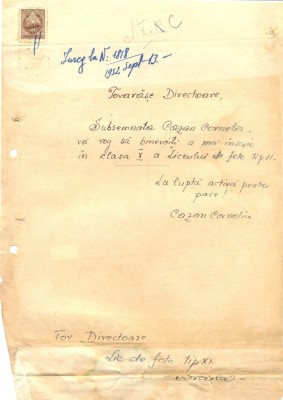 Înreg la Nº 1818
1952 Sept. 13. -
Tovarășe Directoare,
Subsemnata Cazan Cornelia.
vă rog să binevoiți a mă înscrie
în clasa X a Liceului de fete tip 11.
La luptă activă pentru
pace!
Cazan Cornelia
Tov Directoare
Lic de fete tip XI